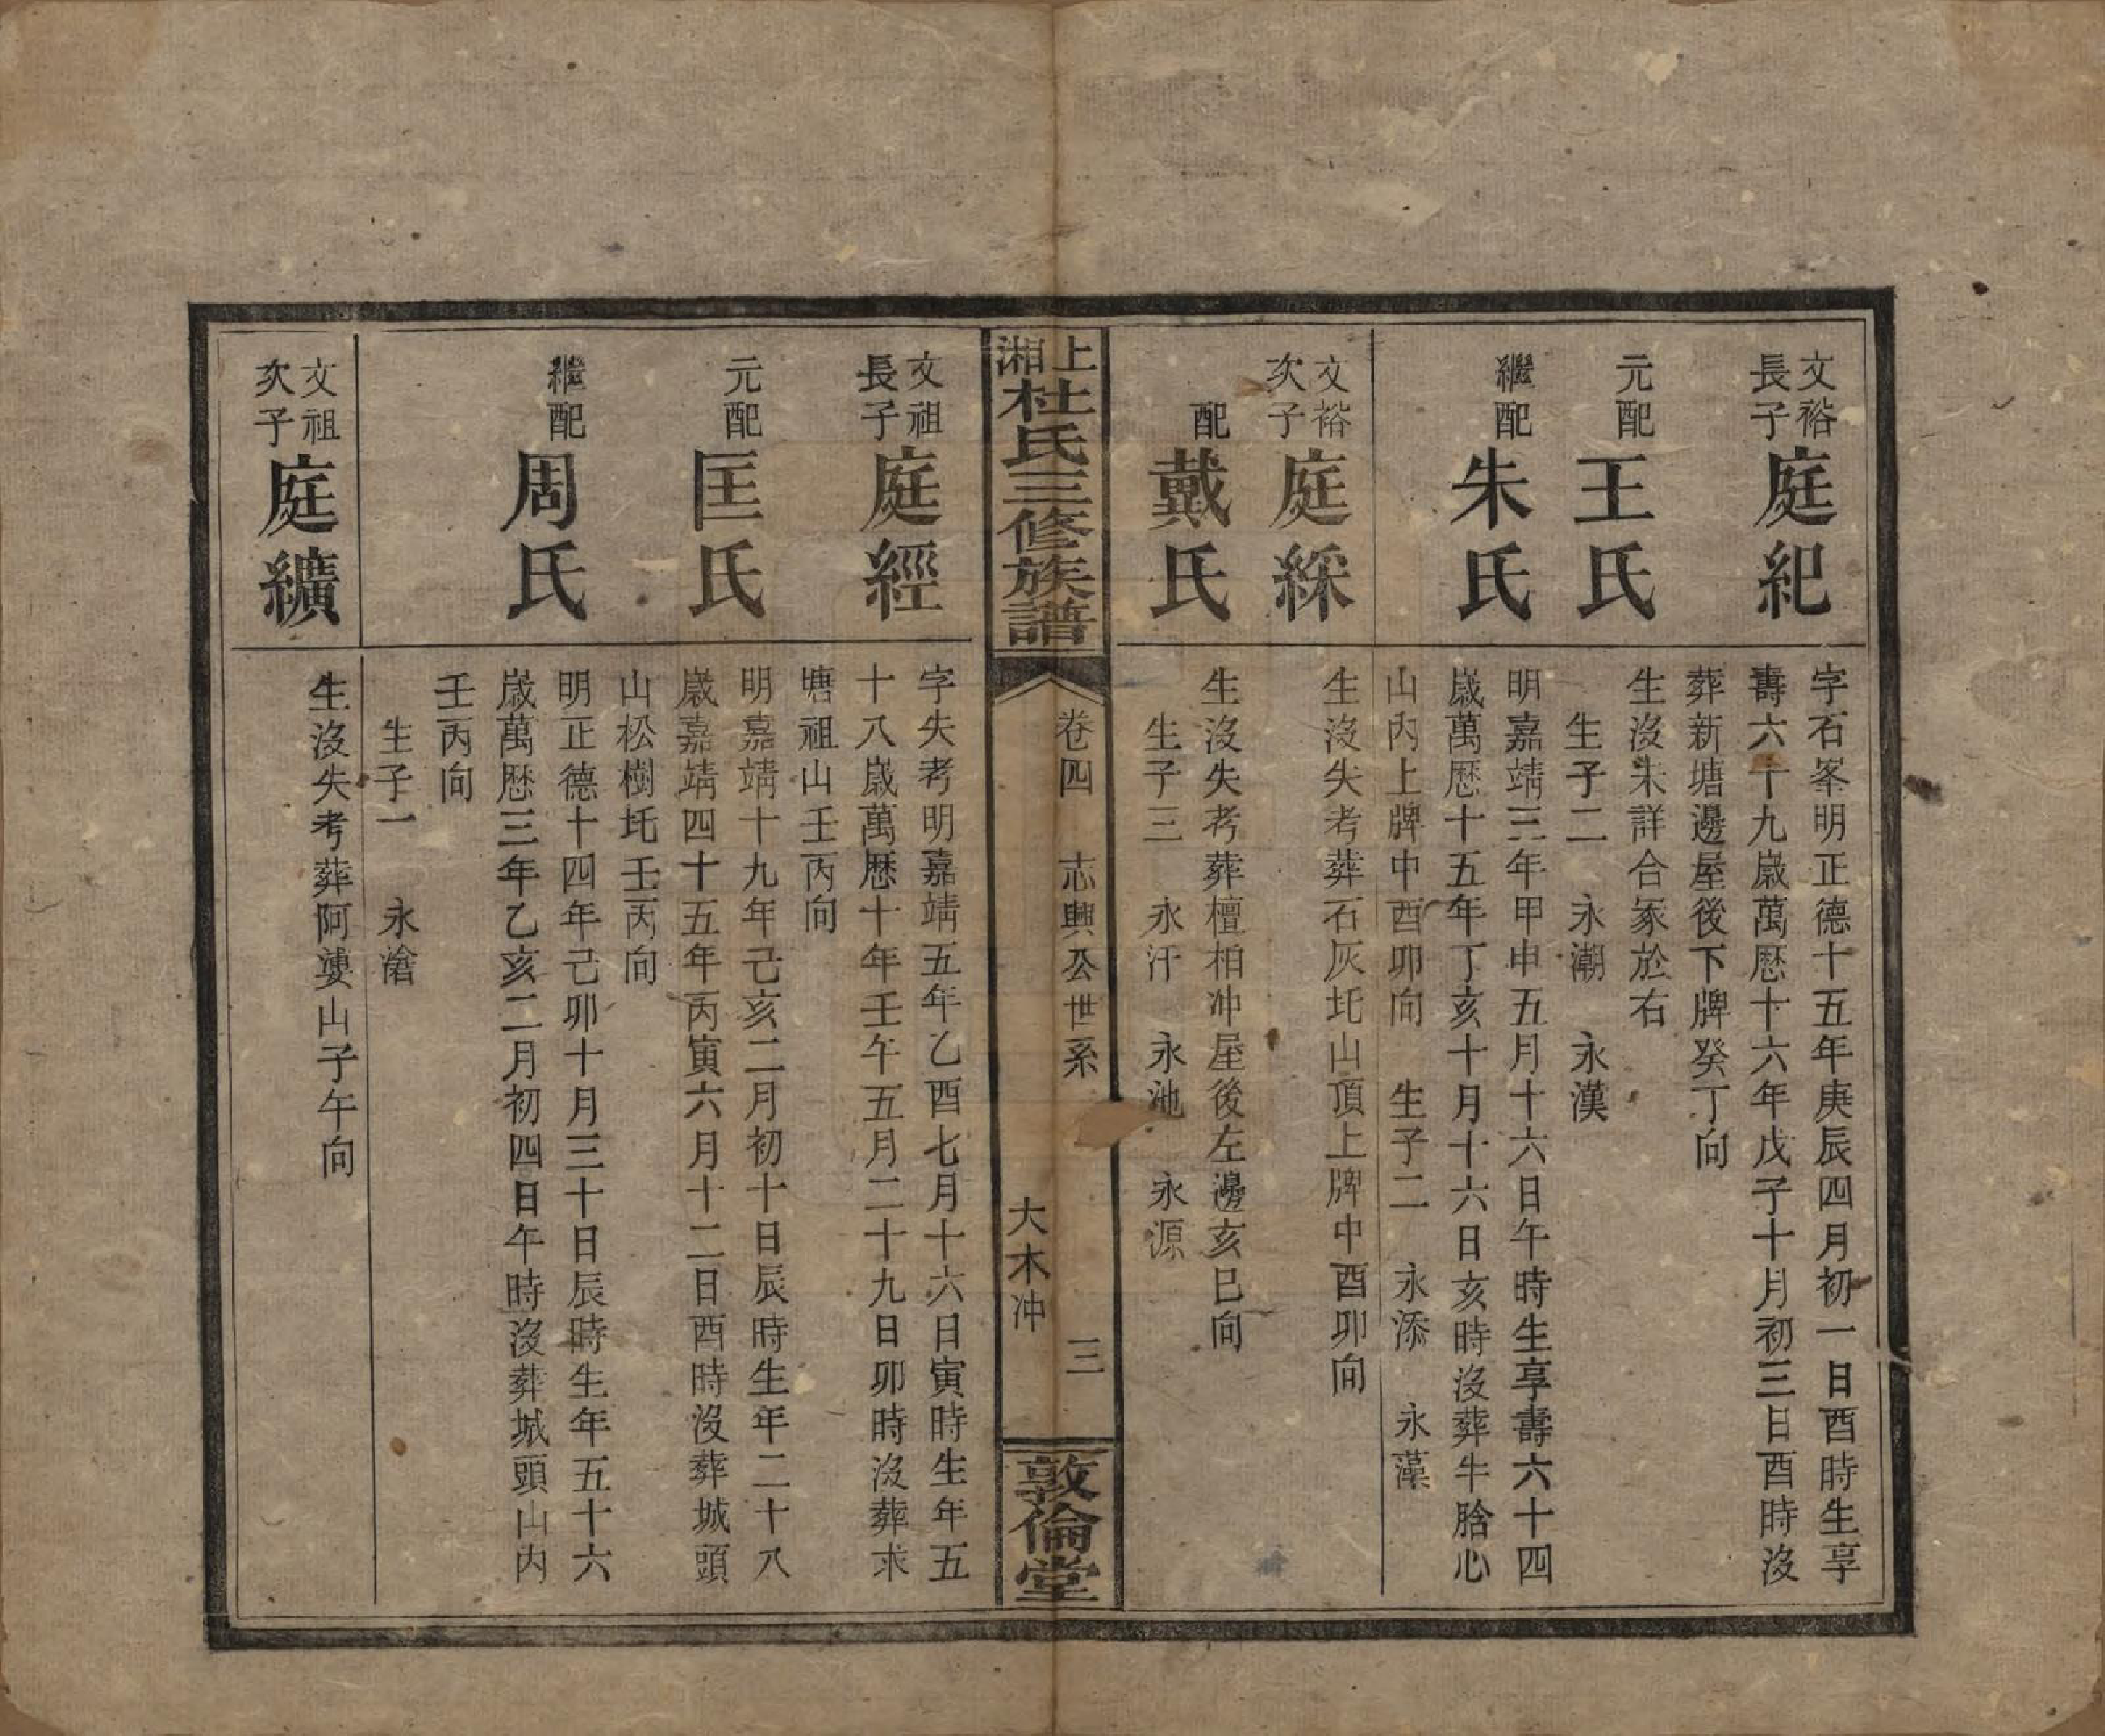 文裕
長子
庭紀
字石峯明正德十五年庚辰四月初一日酉時生享
壽六十九歲萬歴十六年戊子十月初三日酉時沒
葬新塘邊屋後下牌癸丁向
元配
王氏
生沒未詳合冢於右
生子二　永潮　永漢
繼配
朱氏
明嘉靖三年甲申五月十六日午時生享壽六十四
歲萬歴十五年丁亥十月十六日亥時沒葬牛胎心
山內上牌中酉卯向　生子二　永添　永藻
文裕
次子
庭綵
生沒失考葬石灰圫山頂上牌中酉卯向
配
戴氏
生沒失考葬檀柏冲屋後左邊亥巳向
生子三　永汗　永池　永源
上湘
杜氏三修族譜
卷四　志興公世系
三
大木冲
敦倫堂
文祖
長子
庭經
字失考明嘉靖五年乙酉七月十六日寅時生年五
十八歲萬歴十年壬午五月二十九日卯時沒葬求
塘祖山壬丙向
元配
匡氏
明嘉靖十九年己亥二月初十日辰時生年二十八
歲嘉靖四十五年丙寅六月十二日酉時沒葬城頭
山松樹圫壬丙向
繼配
周氏
明正德十四年己卯十月三十日辰時生年五十六
歲萬歴三年乙亥二月初四日午時沒葬城頭山內
壬丙向
生子一　永滄
文祖
次子
庭纊
生沒失考葬阿婆山子午向